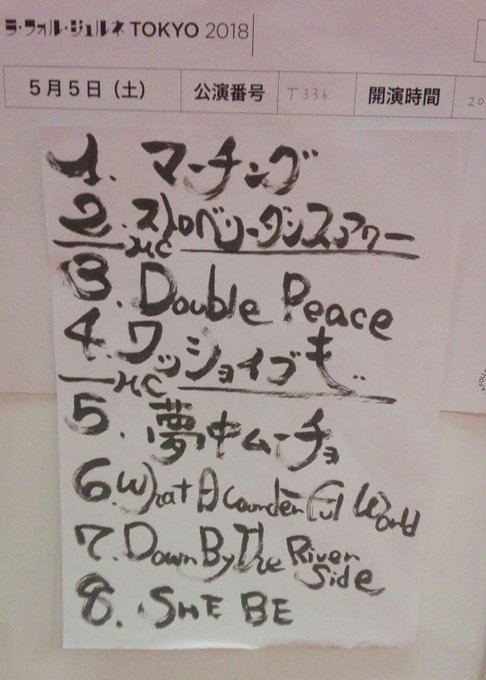 ラ・フォル・ジュルネ TOKYO 2018
5月5日（土） 公演番号 T336 開演時間 20
1. マーチング
2. ストロベリーダンスアワー
MC
3. Double Peace
4. ワッショイブギ
MC
5. 夢中ムーチョ
6. What A Wonderful World
7. Down By The River
Side
8. SHE BE